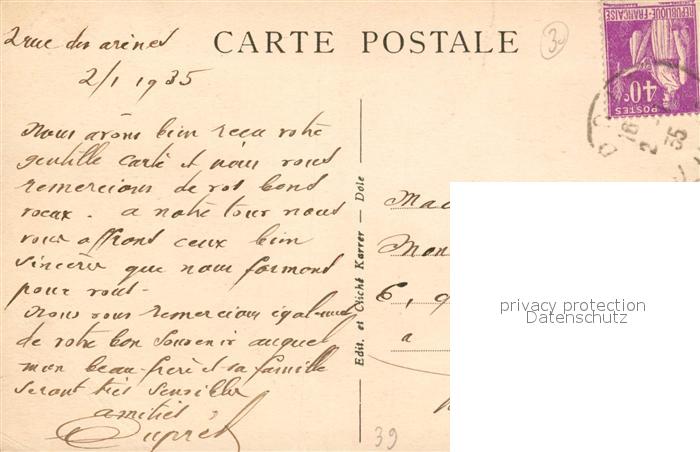 2 rue des arènes
2/1 1935
CARTE POSTALE
30
RÉPUBLIQUE-FRANÇAISE
40c
POSTES
16
2
35
Nous avons bien reçu votre
gentille carte et nous vous
remercions de vos bons
voeux. a notre tour nous
vous offrons ceux bien
sincères que nous formons
pour vous.
Nous vous remercions également
de votre bon souvenir auquel
mon beau-frère et sa famille
seront très sensibles
amitiés
Edit. et Cliché Karrer — Dole
Mon
6,
a
39
privacy protection
Datenschutz